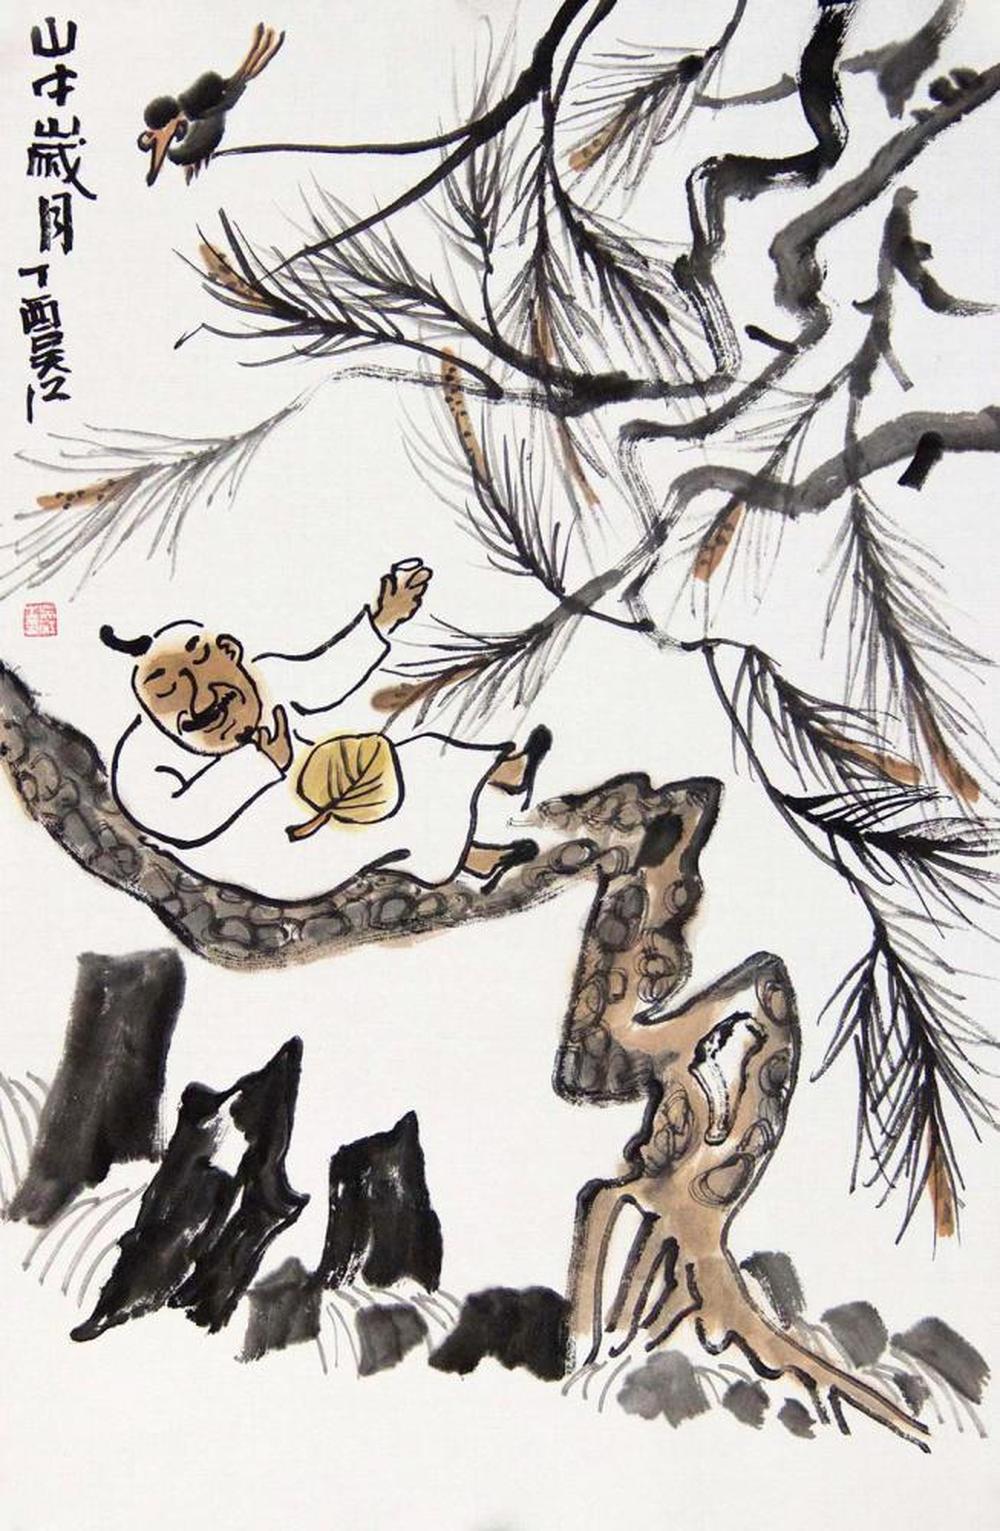 山中歲月
丁酉吴江